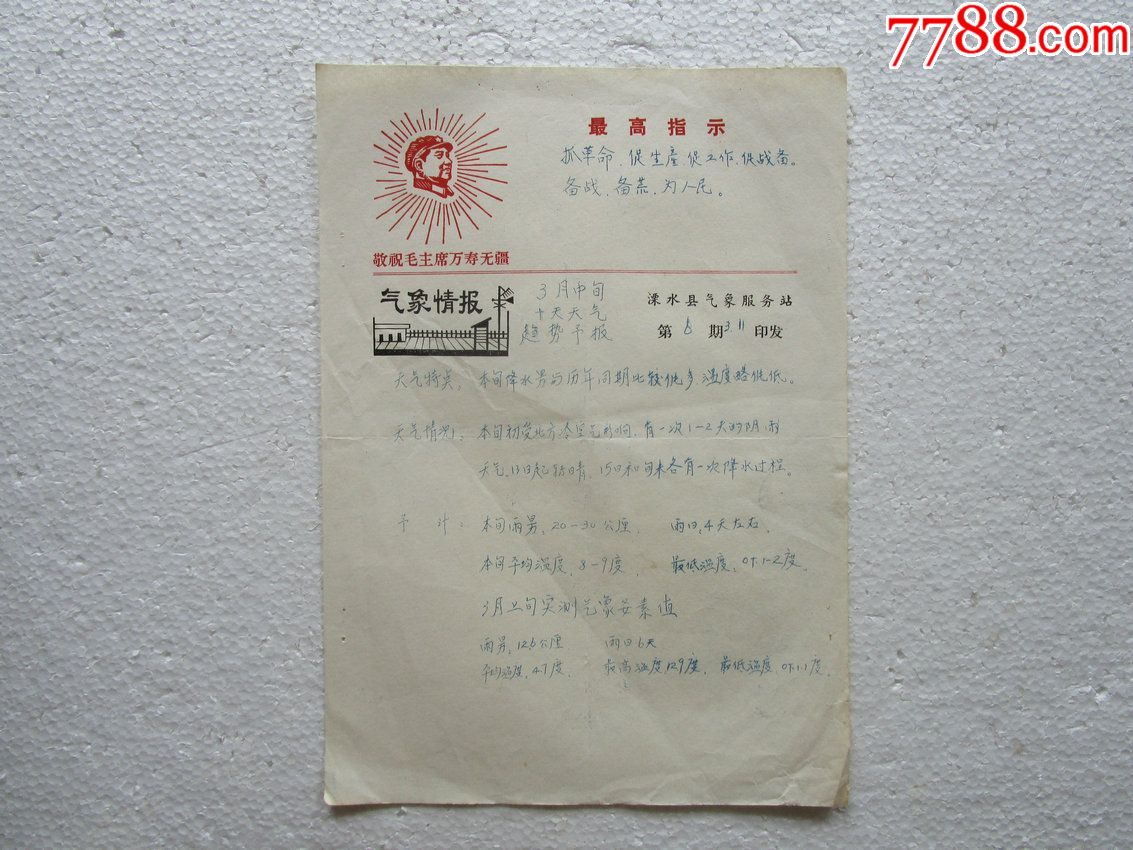 7788.com
最高指示
抓革命、促生产、促工作、促战备。
备战、备荒、为人民。
敬祝毛主席万寿无疆
气象情报
3月中旬
十天天气
趋势予报
溧水县气象服务站
第6期3.11印发
天气特点：本旬降水量与历年同期比较偏多，温度略偏低。
天气情况：本旬初受北方冷空气影响，有一次1—2天的阴雨
天气，13日起转晴，15日和旬末各有一次降水过程。
予计：本旬雨量，20—30公厘，雨日，4天左右。
本旬平均温度，8—9度，最低温度，0下1—2度。
3月上旬实测气象要素值
雨量，12.6公厘 雨日6天
平均温度，4.7度，最高温度12.9度，最低温度，0下1.1度。